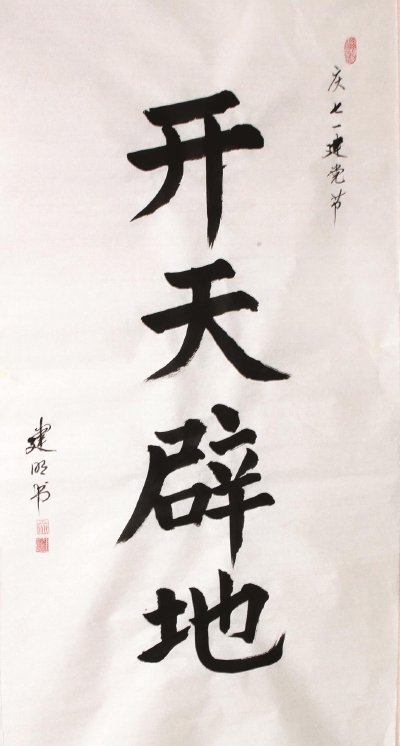 庆七一建党节
开天辟地
建明书